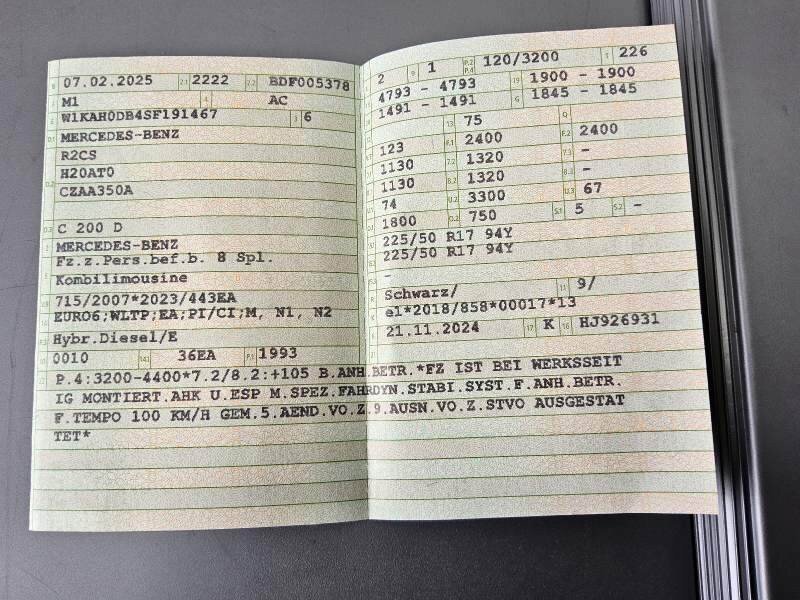 B 07.02.2025 2.1 2222 2.2 BDF005378
J M1 4 AC
E W1KAH0DB4SF191467 3 6
D.1 MERCEDES-BENZ
R2CS
D.2 H20AT0
CZAA350A
D.3 C 200 D
2 MERCEDES-BENZ
5 Fz.z.Pers.bef.b. 8 Spl.
Kombilimousine
V.9 715/2007*2023/443EA
14 EURO6;WLTP;EA;PI/CI;M, N1, N2
P.3 Hybr.Diesel/E
10 0010 14.1 36EA P.1 1993
22 P.4:3200-4400*7.2/8.2:+105 B.ANH.BETR.*FZ IST BEI WERKSSEIT
IG MONTIERT.AHK U.ESP M.SPEZ.FAHRDYN.STABI.SYST.F.ANH.BETR.
F.TEMPO 100 KM/H GEM.5.AEND.VO.Z.9.AUSN.VO.Z.STVO AUSGESTAT
TET*
2 9 1 P.2 P.4 120/3200 T 226
4793 - 4793 19 1900 - 1900
1491 - 1491 G 1845 - 1845
13 75 Q
123 F.1 2400 F.2 2400
1130 7.2 1320 7.3 -
1130 8.2 1320 8.3 -
74 U.2 3300 U.3 67
1800 O.2 750 S.1 5 S.2 -
225/50 R17 94Y
225/50 R17 94Y
-
R Schwarz/ 11 9/
K e1*2018/858*00017*13
6 21.11.2024 17 K 16 HJ926931
21